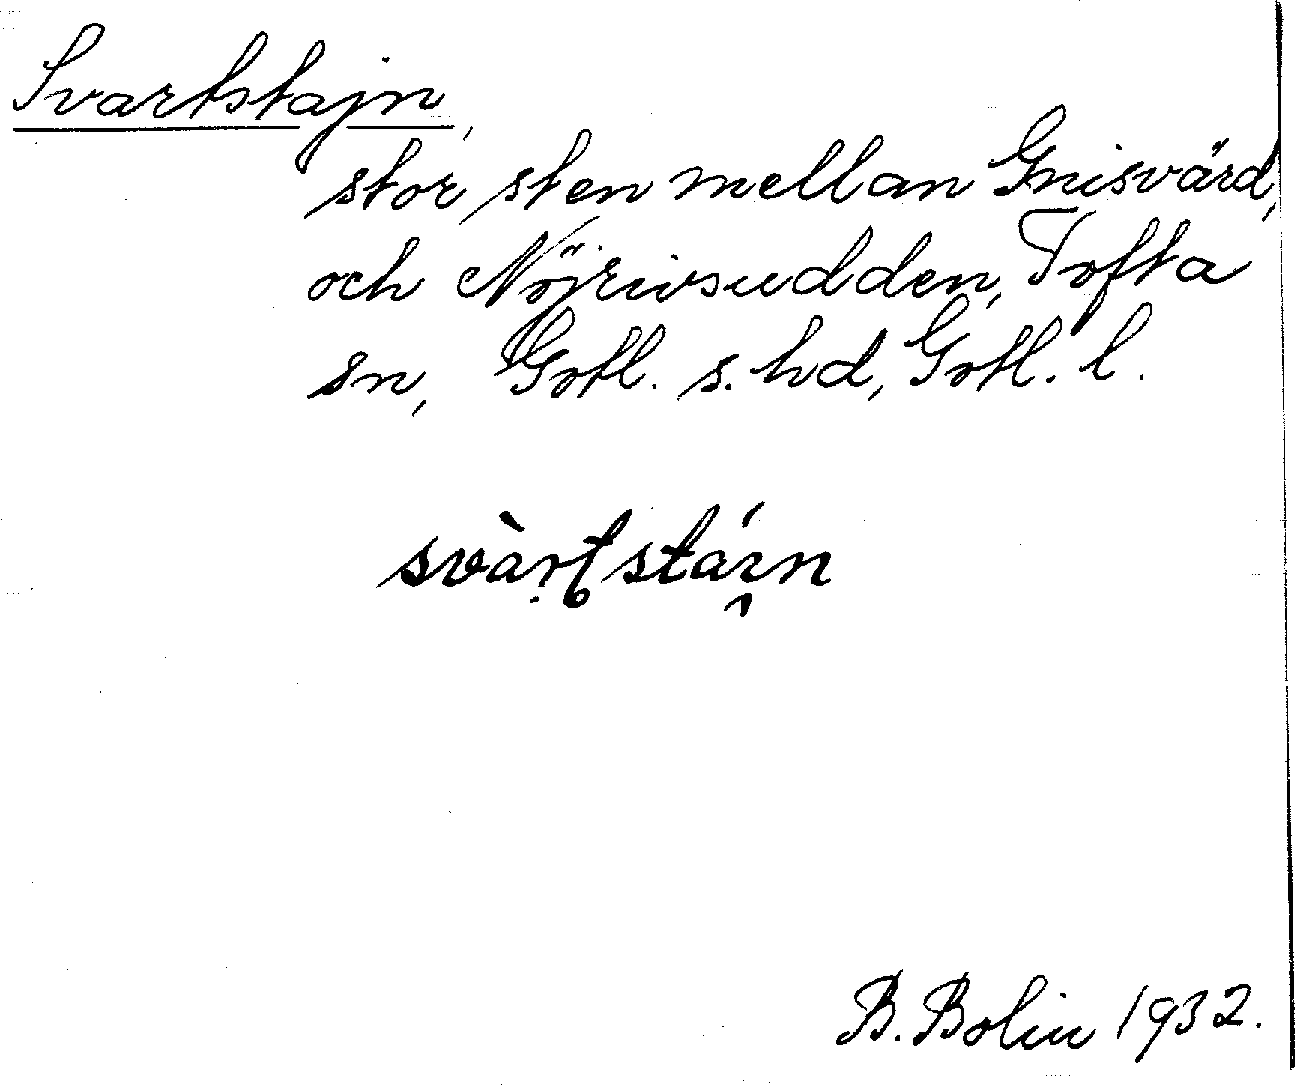 Svartstajn,
stor sten mellan Gnisvärd,
och Nöjrivsudden, Tofta
sn, Gotl. s. hd, Gotl. l.
svàrtstáın
B. Bolin 1932.